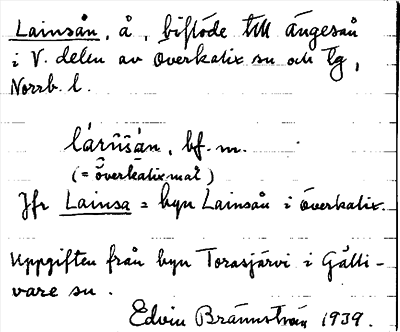 Lainsån, å, biflöde till Ängeså
i V. delen av Överkalix sn och tg,
Norrb. l.
bf. m.
(= överkalixmål)
Jfr Lainsa = byn Lainsån i Överkalix.
Uppgiften från byn Torasjärvi i Gälli-
vare sn.
Edvin Brännström 1939.